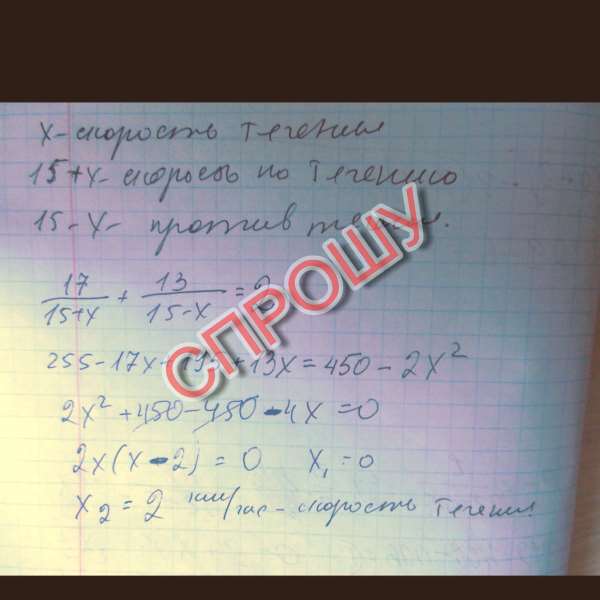 x - скорость течения
15+x - скорость по течению
15-x - против течения.
17/(15+x) + 13/(15-x) = 2
255-17x+195+13x=450-2x²
2x²+450-450-4x=0
2x(x-2)=0 x₁=0
x₂=2 км/час - скорость течения
СПРОШУ